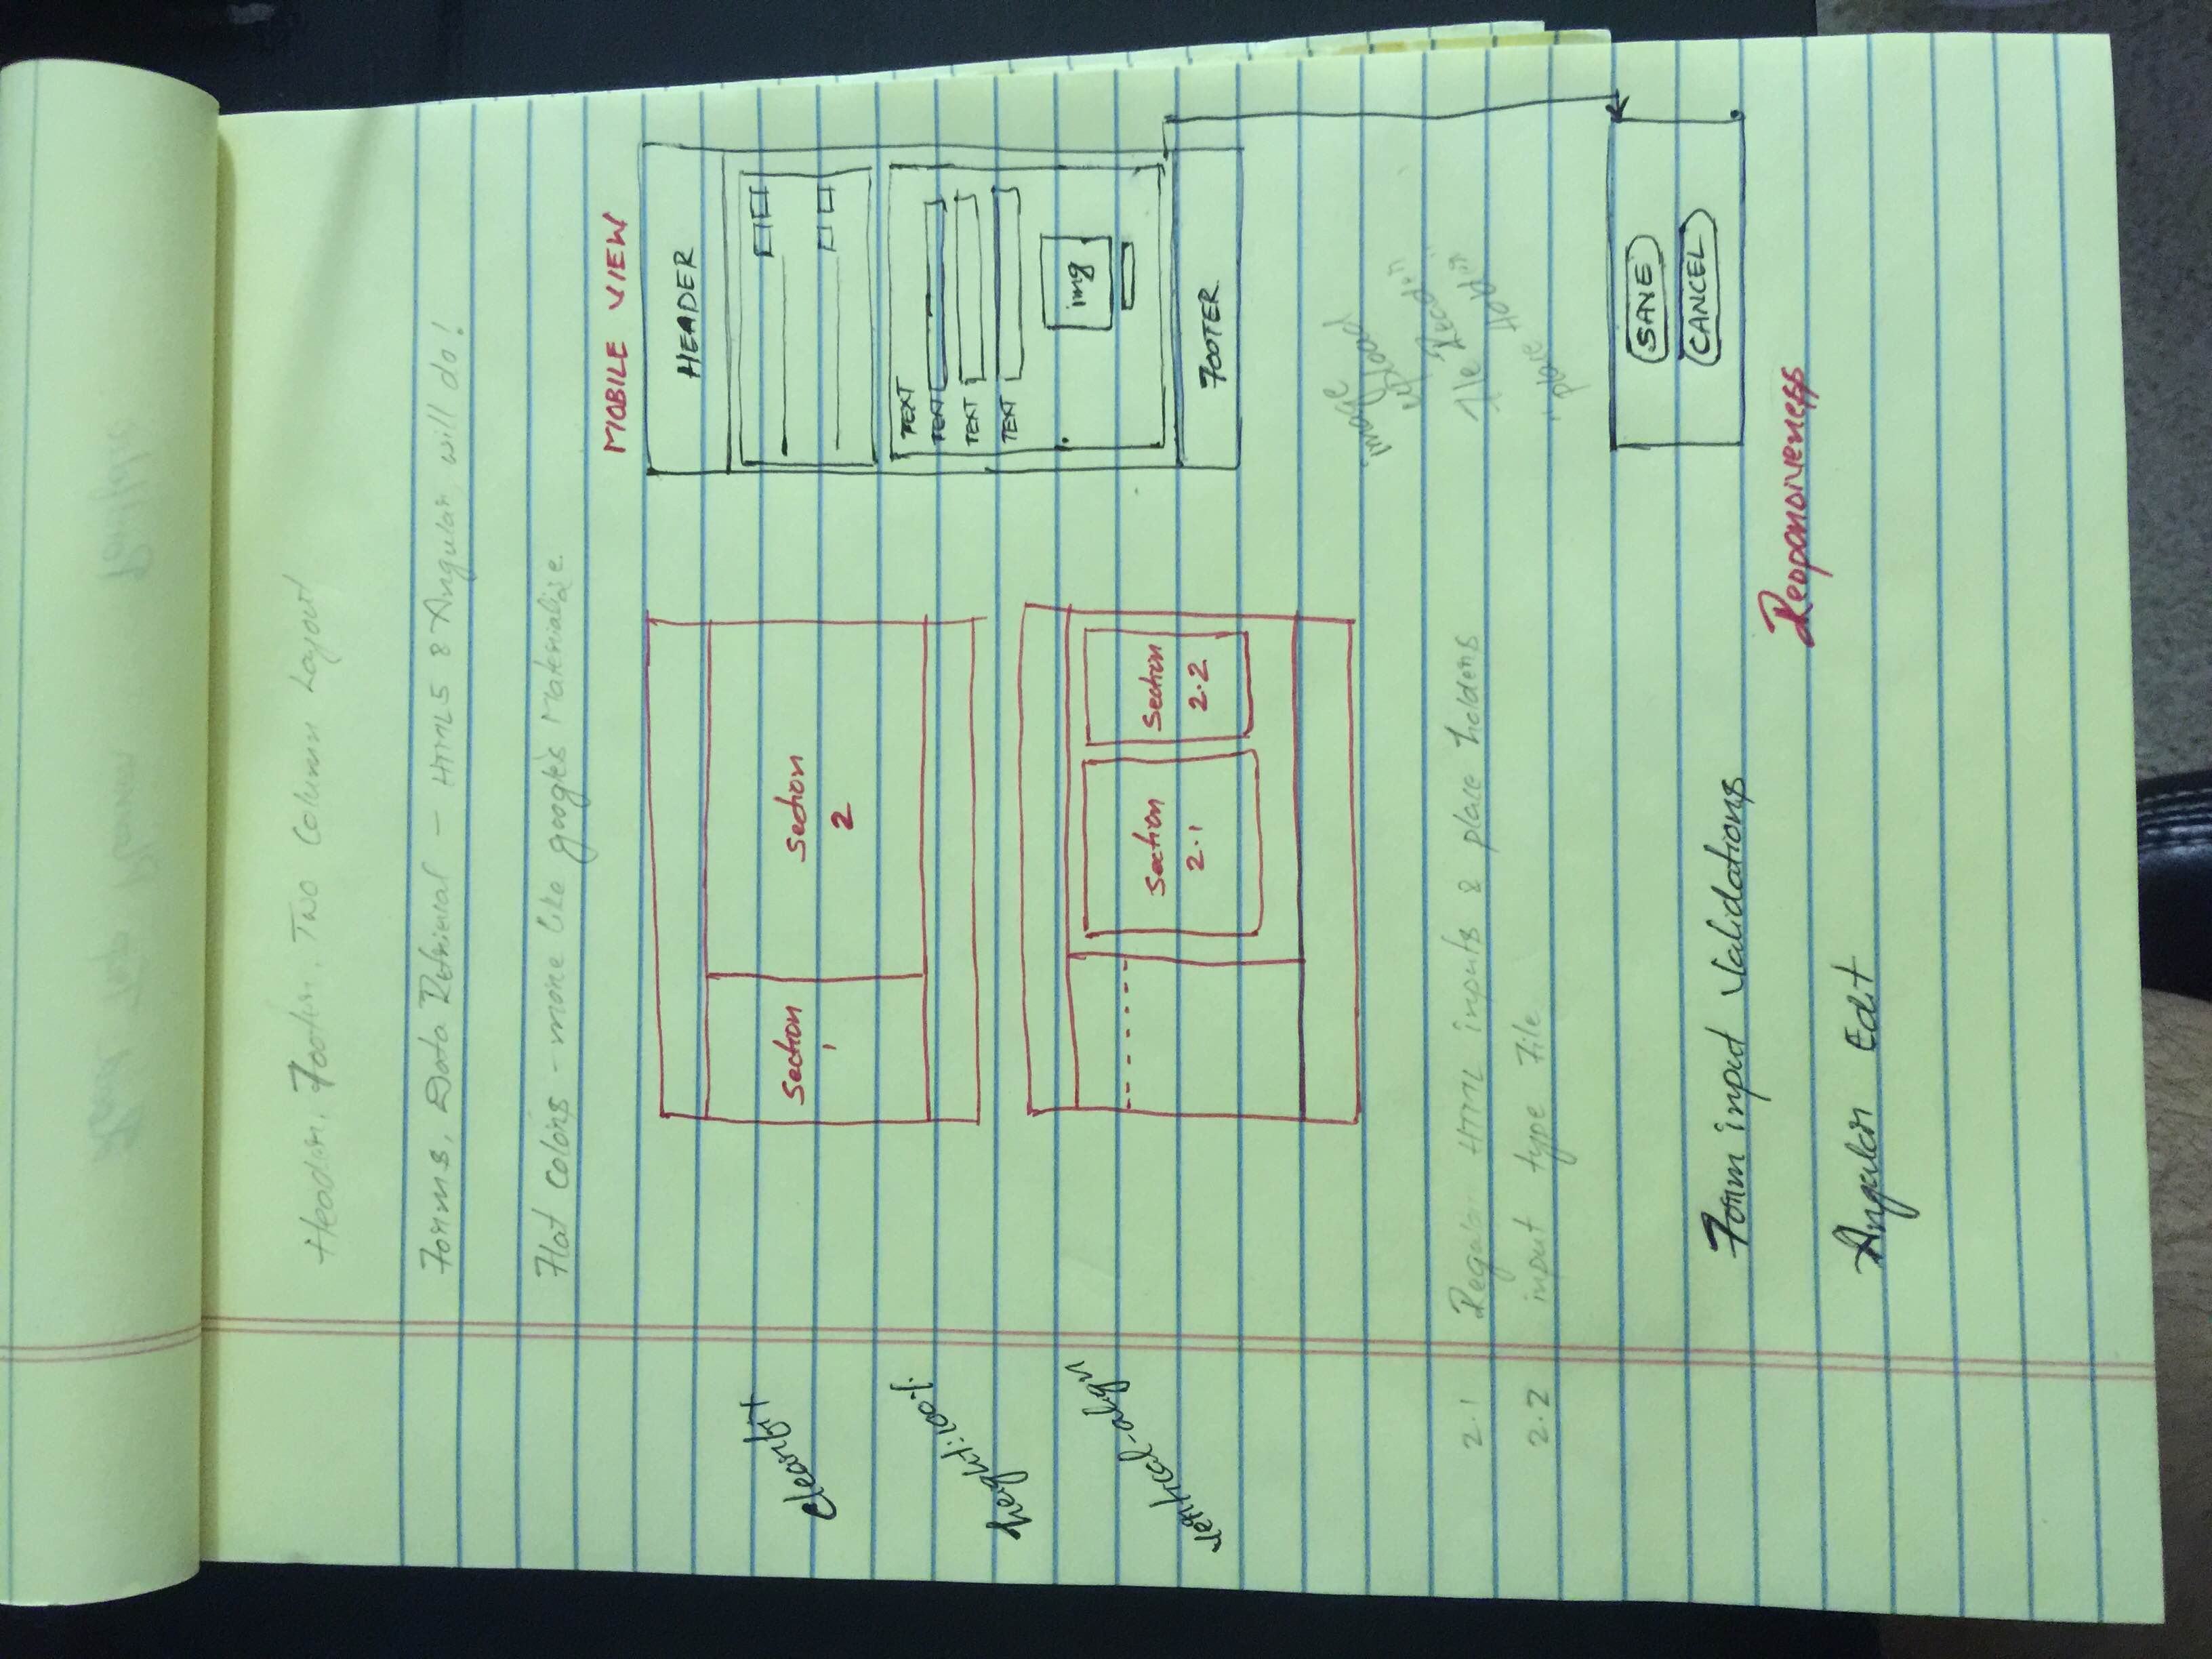 Header, Footer, Two Column Layout
Forms, Data Retrieval - HTML5 & Angular will do!
Flat Colors - more like google's Materialize.
MOBILE VIEW
HEADER
clearfix
height:100%
vertical-align
Section
1
Section
2
TEXT
TEXT
TEXT
TEXT
img
FOOTER
Section
2.1
Section
2.2
image
upload
File Reader
"place Holder"
2.1 Regular HTML inputs & place holders
2.2 input type File
SAVE
CANCEL
Form input Validations
Responsiveness
Angular Edit